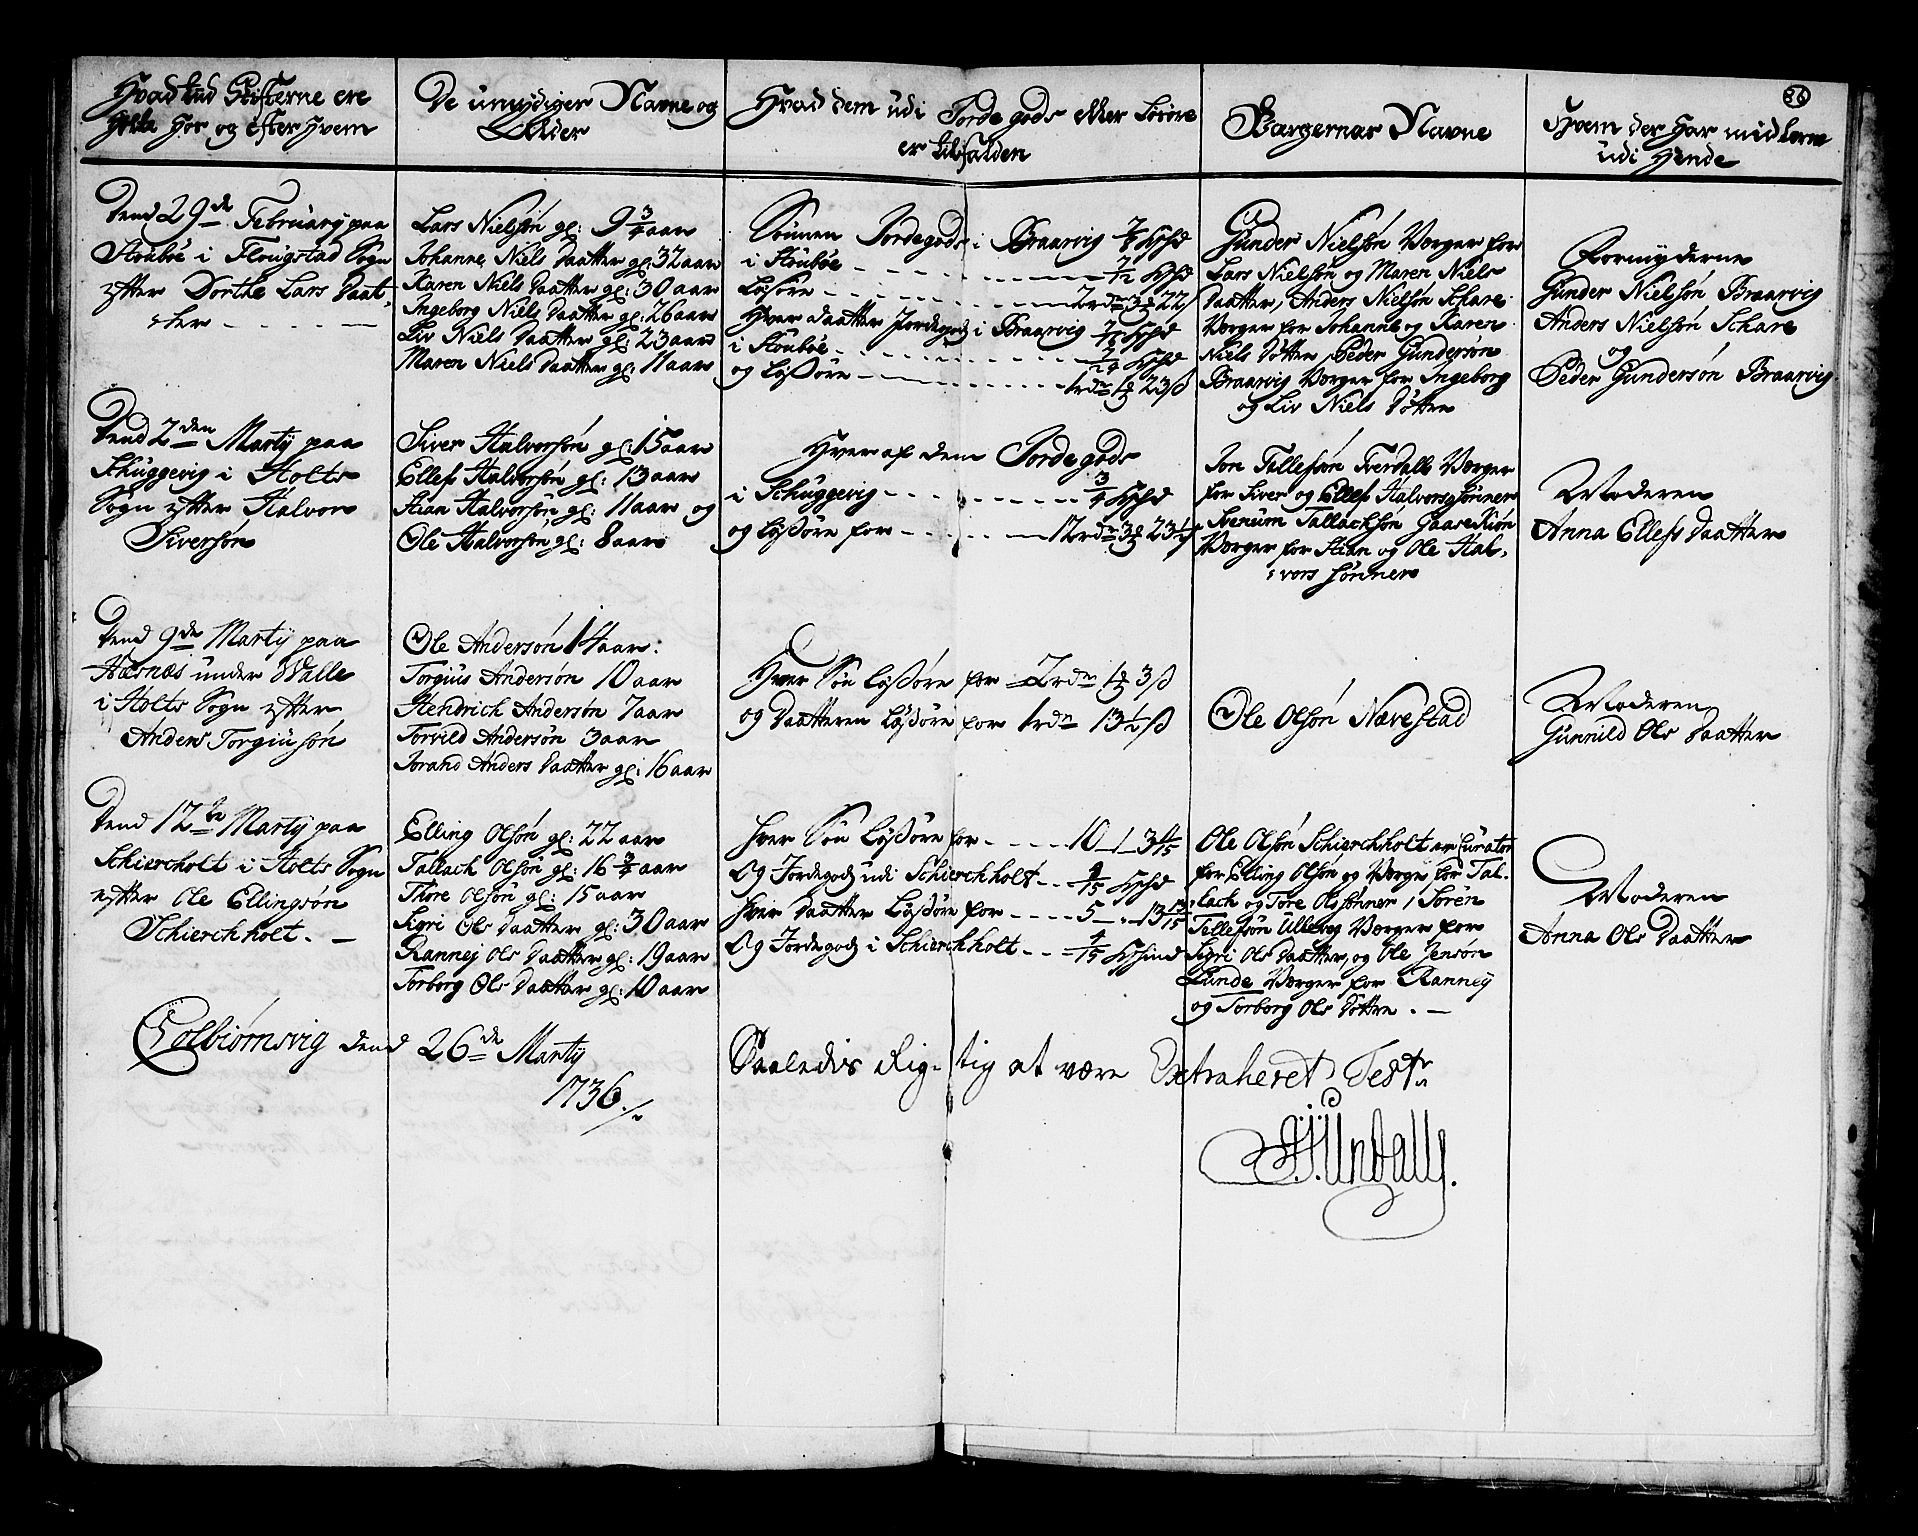 36
Hvad tüd Skifterne ere
Holte Hos og efter Hvem
De umÿndiger Navne og
Allder
Hvad dem udi Jorde gods eller Løsøre
er tilfalden
Værgernes Navne
Hvem der Har midlerne
udi Hende
Dend 29de Februarÿ paa
Stoubøe i Flougstad Sogn
efter Dorthe Lars Daat,
ster
Lars Nielsøn gl: 9 3/4 aar
Johanne Niels Daatter gl: 32 aar
Karen Niels Daatter gl: 30 aar
Ingeborg Niels Daatter gl: 26 aar
Liv Niels Daatter gl: 23 aar
Maren Niels Daatter gl: 11 aar
Sønnen Jordegods i Braarvig 7/8 hشd
i Stoubøe 7/12
Løsøre 2 rdr 3 22 ß
Hver daatter Jordegods i Braarvig 7/16
i Stoubøe 7/24
og Løsøre 1 rdr 1 23 ß
Gunder Nielsøn Verger for
Lars Nielsøn og Maren Niels
Daatter, Anders Nielsøn Schare
Verger for Johanne og Karen
Niels Døttre, Peder Gundersøn
Braarvig Verger for Ingeborg
og Liv Niels Døttre
Formÿnderne
Gunder Nielsøn Braarvig
Anders Nielsøn Schare
og
Peder Gundersøn Braarvig
Dend 2den Martÿ paa
Schuggevig i Holts
Sogn efter Halvor
Siversøn
Siver Halvorsøn gl: 15 aar
Ellef Halvorsøn gl: 13 aar
Stian Halvorsøn gl: 11 aar og
Ole Halvorsøn gl: 8 aar
Hver af dem Jorde gods
i Schuggevig 3/4
og Løsøre for 12 rdr 3 23 1/2 ß
Jon Tallefsøn Tverdall Verger
for Siver og Ellef Halvorsønner
Svenum Tallachsøn Gaaseküon
Verger for Stian og Ole Hal,
vors sønner
Moderen
Anna Ellefs Daatter
Dend 9de Martÿ paa
Hæsnæs under Walle
i Holts Sogn efter
Anders Torgiusøn
Ole Andersøn 14 aar:
Torgius Andersøn 10 aar
Hendrich Andersøn 7 aar
Torvild Andersøn 3 aar
Jorand Anders Daatter gl: 16 aar
Hver Søn Løsøre for 2 rdr 1 3 ß
og Daatteren Løsøre for 1 rdr 13 1/2 ß
Ole Olsøn Nævestad
Moderen
Gunnild Ols Daatter
Dend 12te Martÿ paa
Schierckholt i Holts Sogn
efter Ole Ellingsøn
Schierckholt.
Elling Olsøn gl: 22 aar
Tallach Olsøn gl: 16 3/4 aar
Thore Olsøn gl: 15 aar
Sigri Ols Daatter gl: 30 aar
Rannej Ols Daatter gl: 19 aar
Torborg Ols Daatter gl: 10 aar
Hver Søn Løsøre for 10 1 3 11/15
Og Jordegods udi Schierckholt 8/15
Hver Daatter Løsøre for 5 13 13/15
Og Jordegods i Schierckholt 4/15
Ole Olsøn Schierckholt er Curator
for Elling Olsøn og Verger for Tal,
lach og Tore Olssønner, Søren
Tellefsøn Ullevog Verger for
Sigri Ols Daatter, og Ole Jensøn
Lunde Verger for Rannej
og Torborg Ols Døttre.
Moderen
Anna Ols Daatter
Colbiørnsvig dend 26de Martÿ
1736
Saaledis Rigtig at være Extraheret Test:
Undall.